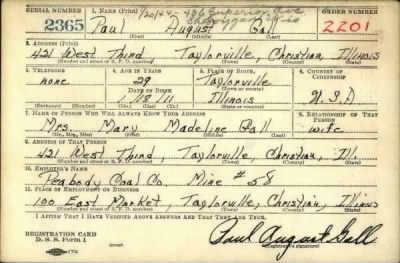 SERIAL NUMBER 1. NAME (Print) ORDER NUMBER
2365 Paul August Gall 2201
(First) (Middle) (Last)
2. ADDRESS (Print)
421 West Third Taylorville, Christian, Illinois
(Number and street or R. F. D. number) (Town) (County) (State)
3. TELEPHONE 4. AGE IN YEARS 5. PLACE OF BIRTH 6. COUNTRY OF CITIZENSHIP
none 29 Taylorville
DATE OF BIRTH
1 18 11 Illinois U.S.A
(Mo.) (Day) (Yr.) (State or country)
7. NAME OF PERSON WHO WILL ALWAYS KNOW YOUR ADDRESS 8. RELATIONSHIP OF THAT PERSON
Mrs. Mary Madeline Gall wife
(Mr., Mrs., Miss) (First) (Middle) (Last)
9. ADDRESS OF THAT PERSON
421 West Third, Taylorville, Christian, Ill.
(Number and street or R. F. D. number) (Town) (County) (State)
10. EMPLOYER'S NAME
Peabody Coal Co. Mine #58
11. PLACE OF EMPLOYMENT OR BUSINESS
100 East Market, Taylorville, Christian, Illinois
(Number and street or R. F. D. number) (Town) (County) (State)
I AFFIRM THAT I HAVE VERIFIED ABOVE ANSWERS AND THAT THEY ARE TRUE.
REGISTRATION CARD
D. S. S. Form 1 Paul August Gall
(Registrant's signature)